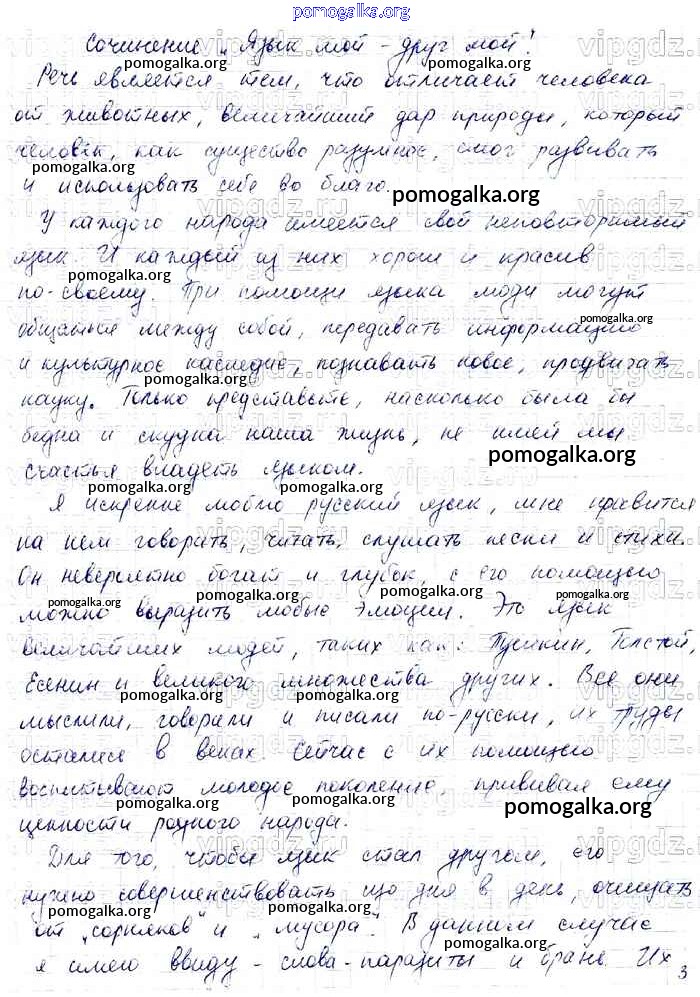 pomogalka.org
Сочинение „Язык мой - друг мой!
Речь является тем, что отличает человека
от животных, величайший дар природы, который
человек, как существо разумное, смог развивать
и использовать себе во благо.
pomogalka.org
У каждого народа имеется свой неповторимый
язык. И каждый из них хорош и красив
pomogalka.org pomogalka.org
по-своему. При помощи языка люди могут
общаться между собой, передавать информацию
pomogalka.org
и культурное наследие, познавать новое, продвигать
pomogalka.org
науку. Только представьте, насколько была бы
бедна и скудна наша жизнь, не имей мы
pomogalka.org
счастья владеть языком.
pomogalka.org pomogalka.org
Я искренне люблю русский язык, мне нравится
на нем говорить, читать, слушать песни и стихи.
Он невероятно богат и глубок, с его помощью
pomogalka.org pomogalka.org
можно выразить любые эмоции. Это язык
величайших людей, таких как: Пушкин, Толстой,
Есенин и великого множества других. Все они
pomogalka.org pomogalka.org
мыслили, говорили и писали по-русски, их труды
остались в веках. Сейчас с их помощью
воспитывают молодое поколение, прививая ему
pomogalka.org pomogalka.org
pomogalka.org
ценности родного народа.
Для того, чтобы язык стал другом, его
нужно совершенствовать що дня в день, очищать
pomogalka.org pomogalka.org
от „сорняков" и „мусора". В данном случае
pomogalka.org
я имею ввиду - слова-паразиты и брань. Их
pomogalka.org
3
vipgdz.ru